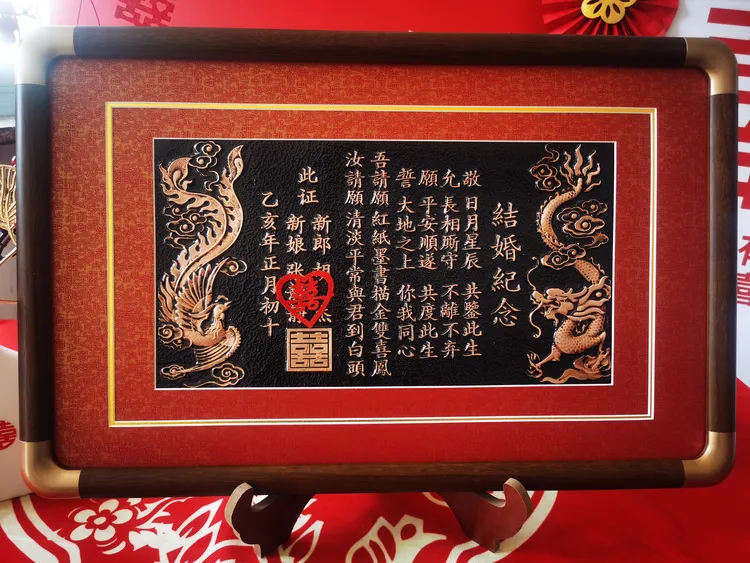 結婚紀念
敬 日月星辰 共鑒此生
允 長相廝守 不離不弃
願 平安順遂 共度此生
誓 大地之上 你我同心
吾請願 紅紙墨書描金雙喜鳳
汝請願 清淡平常與君到白頭
此证
新郎 胡 杰
新娘 张
乙亥年正月初十
囍
囍